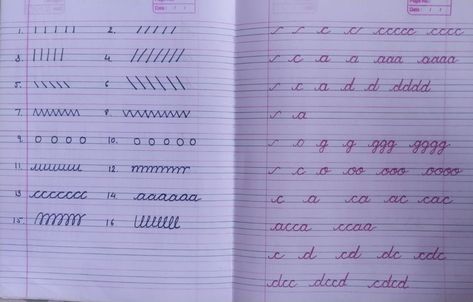 Page No.:
Date: / /
1. | | | | | | 2. / / / / /
3 | | | | | 4. / / / / / / /
5. \ \ \ \ \ 6 \ \ \ \ \ \
7. wwwww 8. wwwwww
9. o o o o 10. o o o o o
11. uuuuuu 12. mmmmm
13 ccccccc 14. aaaaaa
15. 16 llllllll
c c ccccc cccc
c a a aaa aaaa
c a d d dddd
a
o g g ggg gggg
c o oo ooo oooo
c a ca ac cac
acca ccaa
c d cd dc cdc
dcc dccd cdcd